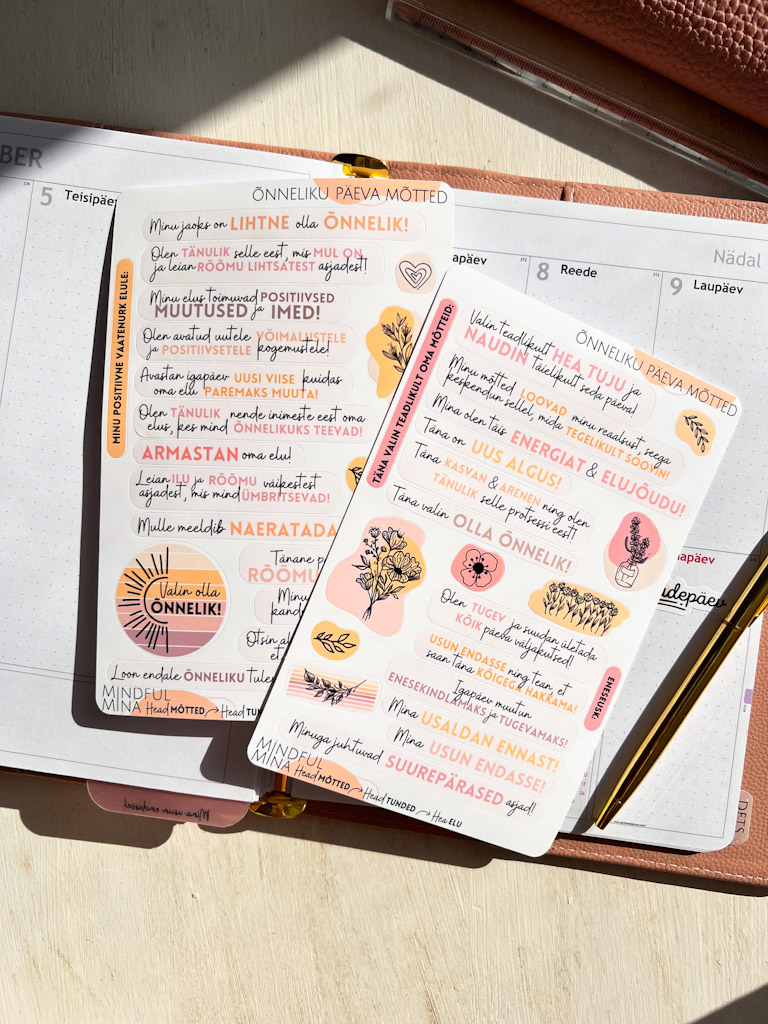 BER
5 Teisipäev
ÕNNELIKU PÄEVA MÕTTED
MINU POSITIIVNE VAATENURK ELULE:
Minu jaoks on LIHTNE olla ÕNNELIK!
Olen TÄNULIK selle eest, mis MUL ON
ja leian RÕÕMU LIHTSATEST asjadest!
Minu elus toimuvad POSITIIVSED
MUUTUSED ja IMED!
Olen avatud uutele VÕIMALUSTELE
ja POSITIIVSETELE kogemustele!
Avastan igapäev UUSI VIISE kuidas
oma elu PAREMAKS MUUTA!
Olen TÄNULIK nende inimeste eest oma
elus, kes mind ÕNNELIKUKS TEEVAD!
ARMASTAN oma elu!
Leian ILU ja RÕÕMU väikestest
asjadest, mis mind ÜMBRITSEVAD!
Mulle meeldib NAERATADA
Valin olla
ÕNNELIK!
Tänane p
RÕÕMU
Minu
kand
Otsin al
et
Loon endale ÕNNELIKU tule
MINDFUL
MINA HeadMÕTTED → HeadTUN
apäev
8 Reede
Nädal
9 Laupäev
ÕNNELIKU PÄEVA MÕTTED
TÄNA VALIN TEADLIKULT OMA MÕTTEID:
Valin teadlikult HEA TUJU ja
NAUDIN täielikult seda päeva!
Minu mõtted LOOVAD minu reaalsust, seega
keskendun sellel, mida TEGELIKULT SOOVIN!
Mina olen täis ENERGIAT & ELUJÕUDU!
Täna on UUS ALGUS!
Täna KASVAN & ARENEN ning olen
TÄNULIK selle protsessi eest!
Täna valin OLLA ÕNNELIK!
ENESEUSK:
Olen TUGEV ja suudan ületada
KÕIK päeva väljakutsed!
USUN ENDASSE ning tean, et
saan täna KÕIGEGA HAKKAMA!
Igapäev muutun
ENESEKINDLAMAKS ja TUGEVAMAKS!
Mina USALDAN ENNAST!
Mina USUN ENDASSE!
Minuga juhtuvad SUUREPÄRASED asjad!
MINDFUL
MINA HeadMÕTTED → HeadTUNDED → HeaELU
hapäev
udepäev
Mina usun endasse!
DETS